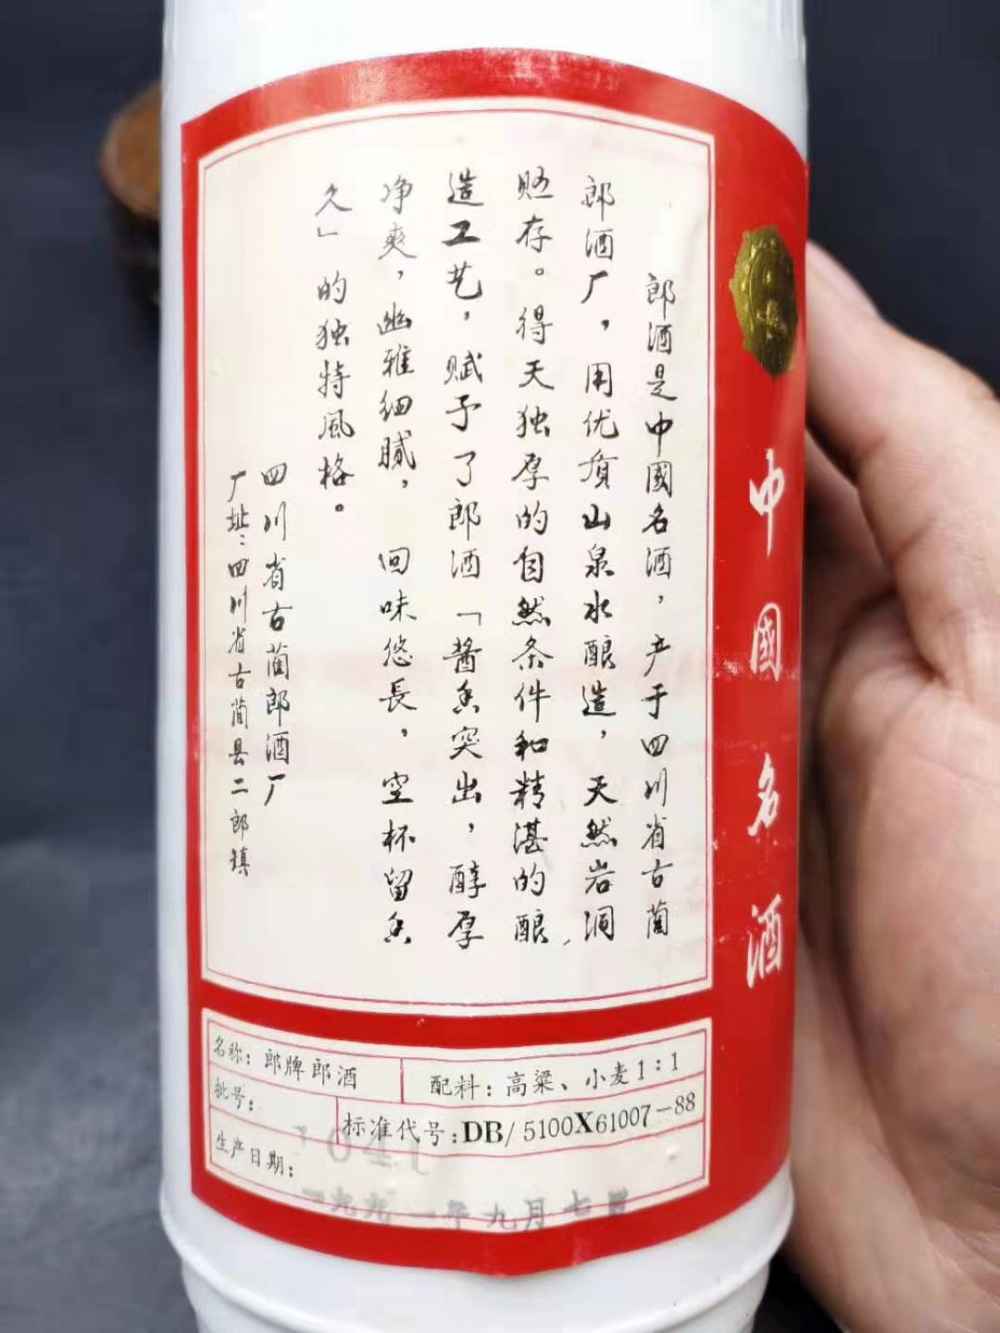 郎酒是中國名酒，产于四川省古蔺
郎酒厂，用优质山泉水酿造，天然岩洞
贮存。得天独厚的自然条件和精湛的酿
造工艺，赋予了郎酒「酱香突出，醇厚
净爽，幽雅细腻，回味悠長，空杯留香
久」的独特風格。
四川省古蔺郎酒厂
厂址：四川省古蔺县二郎镇
中國名酒
名称：郎牌郎酒
配料：高粱、小麦1：1
批号：
标准代号：DB/5100X61007-88
生产日期：
一九九一年九月七日